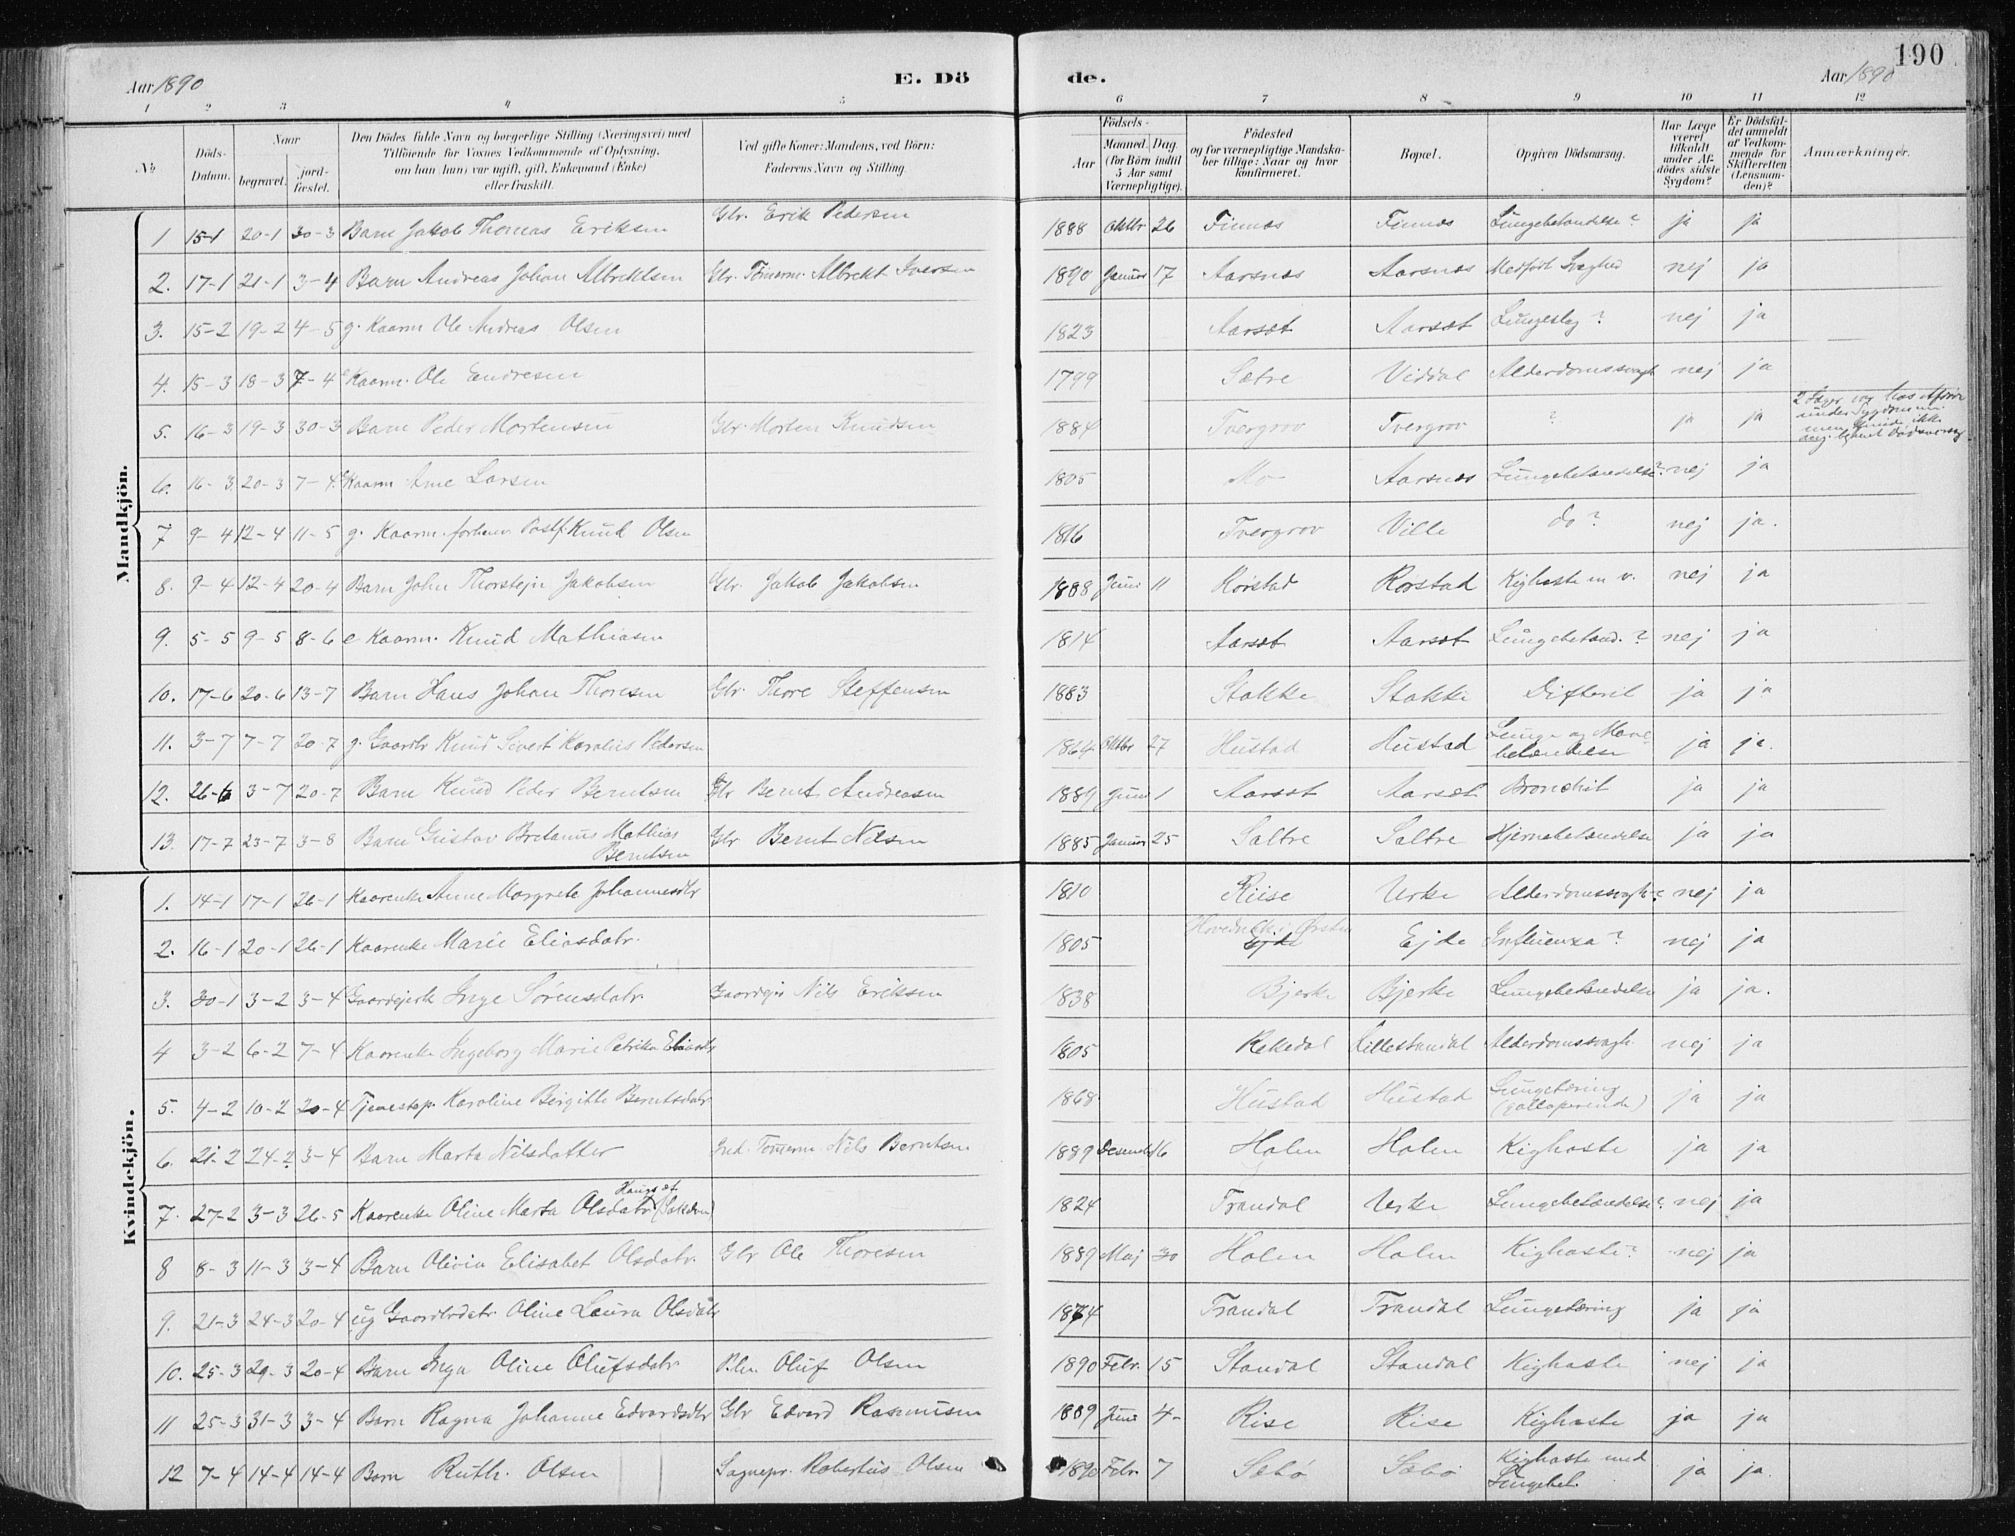 190
Aar 1890 E. Dö de. Aar 1890
1 2 3 4 5 6 7 8 9 10 11 12
No Döds-Datum. Naar begravet. jord-fæstet. Den Dödes fulde Navn og borgerlige Stilling (Næringsvei) med Tilföiende for Voxnes Vedkommende af Oplysning, om han (hun) var ugift, gift, Enkemand (Enke) eller fraskilt. Ved gifte Koner: Mandens, ved Börn: Faderens Navn og Stilling. Födsels- Aar Maaned. Dag. (for Börn indtil 5 Aar samt Værnepligtige). Födested og for værnepligtige Mandskaber tillige: Naar og hvor konfirmeret. Bopæl. Opgiven Dödsaarsag. Har Læge været tilkaldt under Afdödes sidste Sygdom? Er Dödsfaldet anmeldt af Vedkommende for Skifteretten (Lensmanden)? Anmærkninger.
Mandkjön.
1 15-1 20-1 30-3 Barn Jakob Thomas Eriksen Gbr. Erik Pedersen 1888 Oktbr 26 Finnes Finnes Lungebetændelse? ja ja
2. 17-1 21-1 3-4 Barn Andreas Johan Albrektsen Gbr. Tömerm. Albrekt Iversen 1890 Januar 17 Aarsnes Aarsnes Medfödt Svaghed nej ja
3. 15-2 19-2 4-5 g. Kaarm Ole Andreas Olsen 1823 Aarset Aarset Lungesyg? nej ja
4. 15-3 18-3 7-4 e Kaarm. Ole Endresen 1799 Sætre Viddal Alderdomssvagh. nej ja
5. 16-3 19-3 30-3 Barn Peder Mortensen Gbr. Morten Knudsen 1884 Tvergrov Tvergrov ? ja ja 2 Læger var hos under Sygdommen men kunde ikke ang. bestemt Dødsaarsag
6. 16-3 20-3 7-4 e Kaarm Arne Larsen 1805 Mo Aarsnes Lungebetændelse? nej ja
7 9-4 12-4 11-5 g. Kaarm. forhenv. Postf. Knud Olsen 1816 Tvergrov Ville do? nej ja.
8. 9-4 12-4 20-4 Barn John Thorstejn Jakobsen Gbr. Jakob Jakobsen 1888 Juni 11 Rörstad Rorstad Kighoste m v. nej ja
9. 5-5 9-5 8-6 e Kaarm. Knud Mathiasen 1814 Aarset Aarset Lungebetænd.? nej ja
10. 17-6 20-6 13-7 Barn Hans Johan Thoresen Gbr. Thore Steffensen 1883 Stokke Stokke Difterit ja ja
11. 3-7 7-7 20-7 g. Gaardbr Knud Sivert Karolius Pedersen 1864 Oktbr 27 Hustad Hustad Lunge og Mave betændelse ja ja.
12. 26-6 3-7 20-7 Barn Knud Peder Berntsen Gbr Bernt Andreasen 1889 Juni 1 Aarset Aarset Bronchit ja ja
13. 17-7 23-7 3-8 Barn Gustav Bretanus Mathias Berntsen Gbr Bernt Nilsen 1885 Januar 25 Saltre Saltre Hjernebetændelse ja ja
Kvindekjön.
1. 14-1 17-1 26-1 Kaarenke Anne Margrete Johannesdtr 1810 Riise Urke Alderdomssvagh? nej ja
2. 16-1 20-1 26-1 Kaarenke Marie Eliasdatr. 1805 Ejde Ejde Influenza? nej ja
3. 30-1 3-2 3-4 Gaardejersk Inge Sörensdatr Gaardejer Nils Eriksen 1838 Bjerke Bjerke Lungebetændelse ja ja.
4 3-2 6-2 7-4 Kaarenke Ingeborg Marie Petrika Eliasdtr 1805 Rekedal Lillestandal Alderdomssvagh. nej ja
5. 4-2 10-2 20-4 Tjenestep. Karoline Birgitte Berntsdatr 1868 Hustad Hustad Lungetæring (galloperende) ja ja
6. 21-2 24-2 3-4 Barn Marta Nilsdatter Ind. Tömerm Nils Berntsen 1889 Desember 16 Holen Holen Kighoste ja ja
7. 27-2 3-3 26-5 Kaarenke Oline Marta Olsdatr 1824 Trandal Urke Lungebetændelse? nej ja
8 8-3 11-3 3-4 Barn Olivia Elisabet Olsdatr. Gbr Ole Thoresen 1889 Maj 30 Holen Holen Kighoste? nej ja
9. 21-3 24-3 20-4 ug Gaardbrdatr Oline Laura Olsdatr 1874 Trandal Trandal Lungetæring ja ja
10. 25-3 29-3 20-4 Barn Inga Oline Olufsdatr Oluf Olsen 1890 Febr. 15 Standal Standal Kighoste nej ja
11 25-3 31-3 3-4 Barn Ragna Johanne Edvardsdtr Gbr Edvard Rasmusen 1889 Juni 4- Rise Rise Kighoste ja ja
12 7-4 14-4 14-4 Barn Ruth. Olsen Sognepr. Robertus Olsen 1890 Febr. 7 Sæbö Sæbö Kighoste med Lungebet. ja ja.